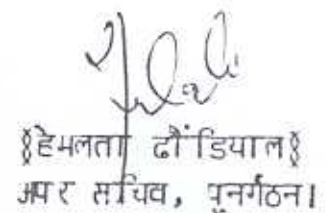 §हेमलता ढौंडियाल§
अपर सचिव, पुनर्गठन।